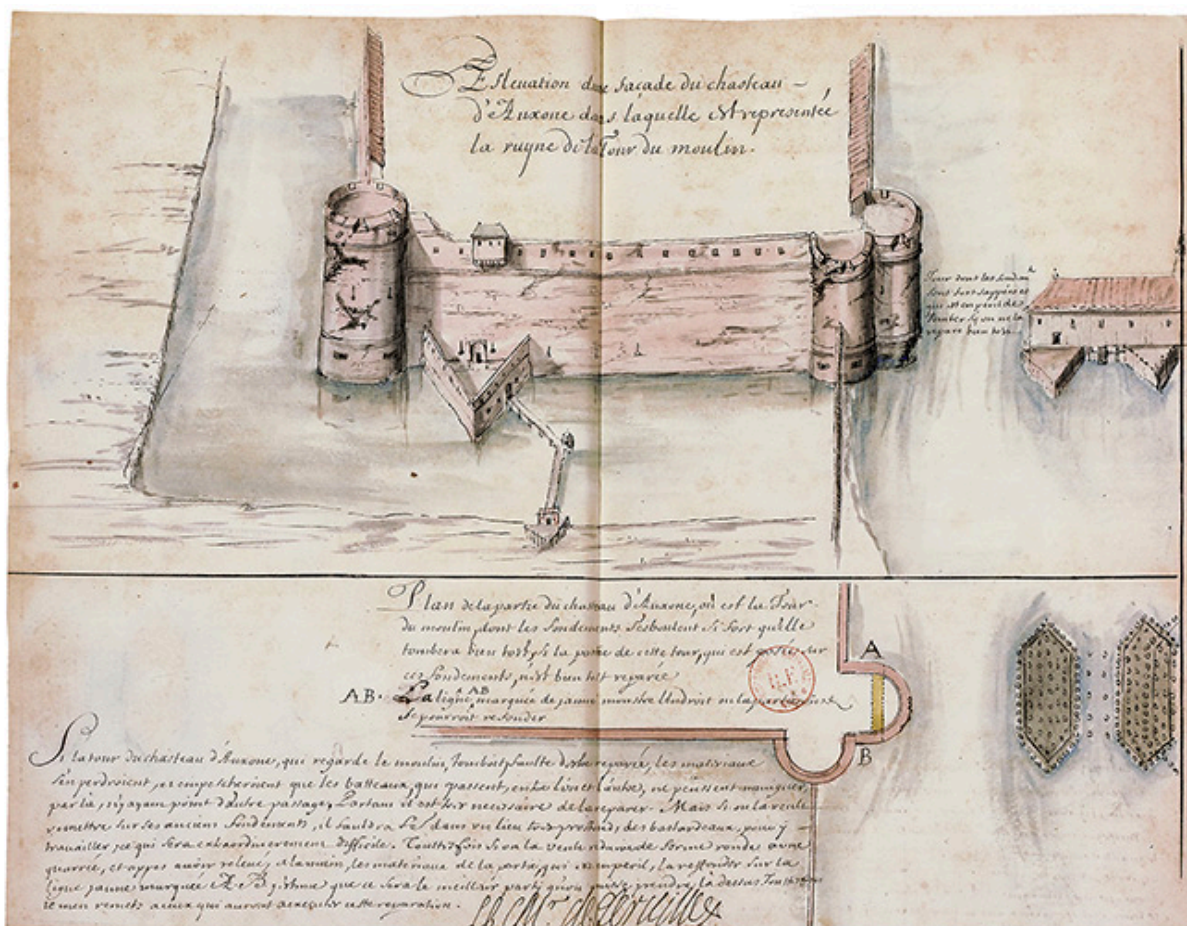 Eleuation dune façade du chasteau
d'Auxone dans laquelle est representée
la ruyne de la Tour du moulin.
Tour dont les fondem.ts
sont sappées et
qui est en peril de
tomber sy on ne la
repare bien tost
Plan de la partie du chasteau d'Auxone, où est la Tour
du moulin, dont les fondements s'esboulent si fort qu'elle
tombera bien tost, si la partie de cette tour, qui est posée sur
ces fondements, n'est bien tost reparée
A
A.B. La ligne AB marquée de jaune monstre l'endroit ou la partie
se pourroit refonder
B
Si la tour du chasteau d'Auxone, qui regarde le moulin, tomboit faulte d'estre reparée, les materiaux
s'en perdroient, et empescheroient que les batteaux, qui passent, entre l'un et l'autre, ne peussent nauiguer,
par là, n'y ayant point d'autre passage, Partant il est necessaire de la reparer. Mais si on la veult
remettre sur ses anciens fondements, il fauldra dans un lieu profond, des bastardeaux, pour y
trauailler, ce qui sera extraordinairement difficile. Toutesfois si on la veult de forme ronde
quarrée, et apres auoir releué, les materiaux de la partie, qui est en peril, la reffonder sur la
ligne jaune marquée A.B. j'estime que ce sera le meilleur party qu'on puisse prendre, là dessus
je m'en remets a ceux qui auront a executer cette reparation.
R.F.